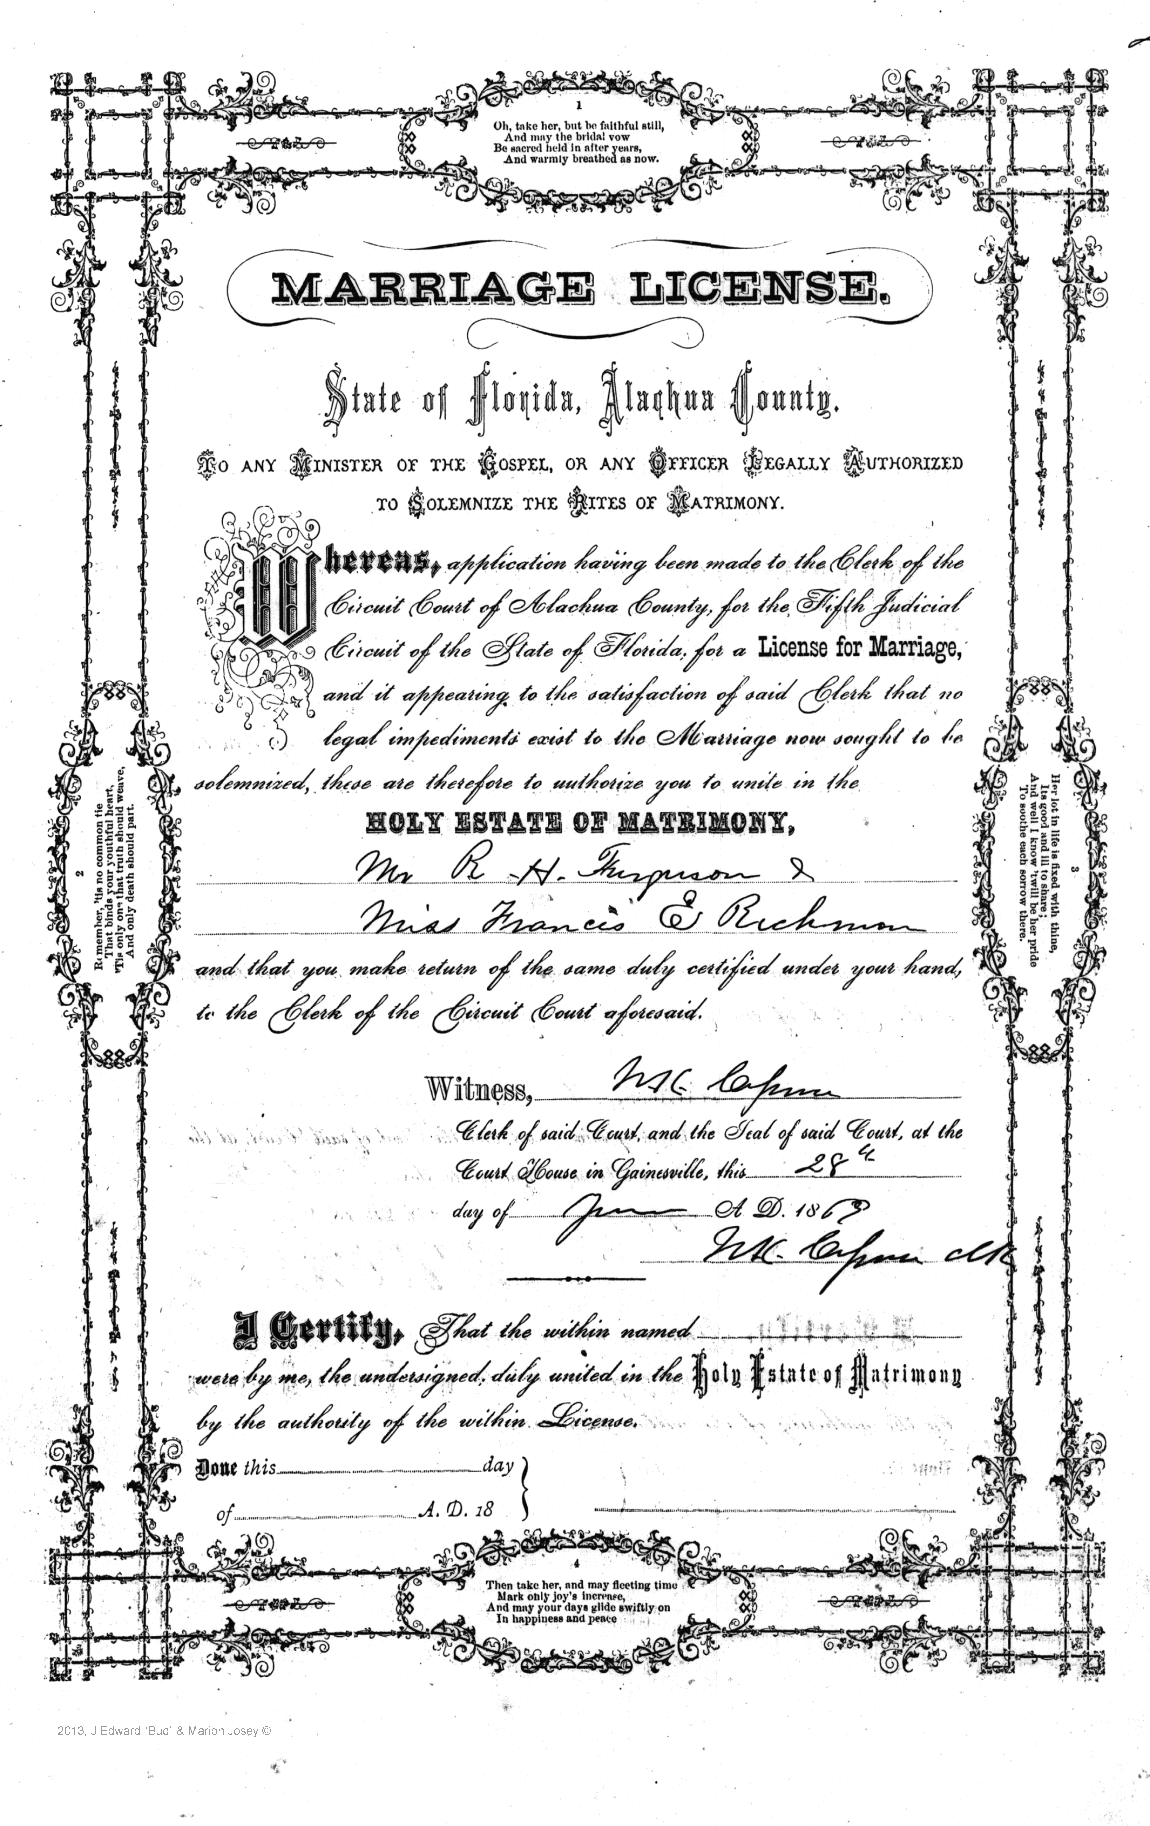 1
Oh, take her, but be faithful still,
And may the bridal vow
Be sacred held in after years,
And warmly breathed as now.
MARRIAGE LICENSE.
State of Florida, Alachua County.
TO ANY MINISTER OF THE GOSPEL, OR ANY OFFICER LEGALLY AUTHORIZED
TO SOLEMNIZE THE RITES OF MATRIMONY.
Whereas, application having been made to the Clerk of the
Circuit Court of Alachua County, for the Fifth Judicial
Circuit of the State of Florida, for a License for Marriage,
and it appearing to the satisfaction of said Clerk that no
legal impediments exist to the Marriage now sought to be
solemnized, these are therefore to authorize you to unite in the
HOLY ESTATE OF MATRIMONY,
Mr R. H. Ferguson &
Miss Francis E Richmon
and that you make return of the same duly certified under your hand,
to the Clerk of the Circuit Court aforesaid.
Witness,
Clerk of said Court, and the Seal of said Court, at the
Court House in Gainesville, this 28th
day of June A. D. 1869
I Certify, That the within named
were by me, the undersigned, duly united in the Holy Estate of Matrimony
by the authority of the within License.
Done this day
of A. D. 18
2
Remember, 'tis no common tie
That binds your youthful heart,
'Tis only one that truth should weave,
And only death should part.
3
Her lot in life is fixed with thine,
Its good and ill to share;
And well I know 'twill be her pride
To soothe each sorrow there.
4
Then take her, and may fleeting time
Mark only joy's increase,
And may your days glide swiftly on
In happiness and peace
2013, J Edward "Bud" & Marion Josey ©